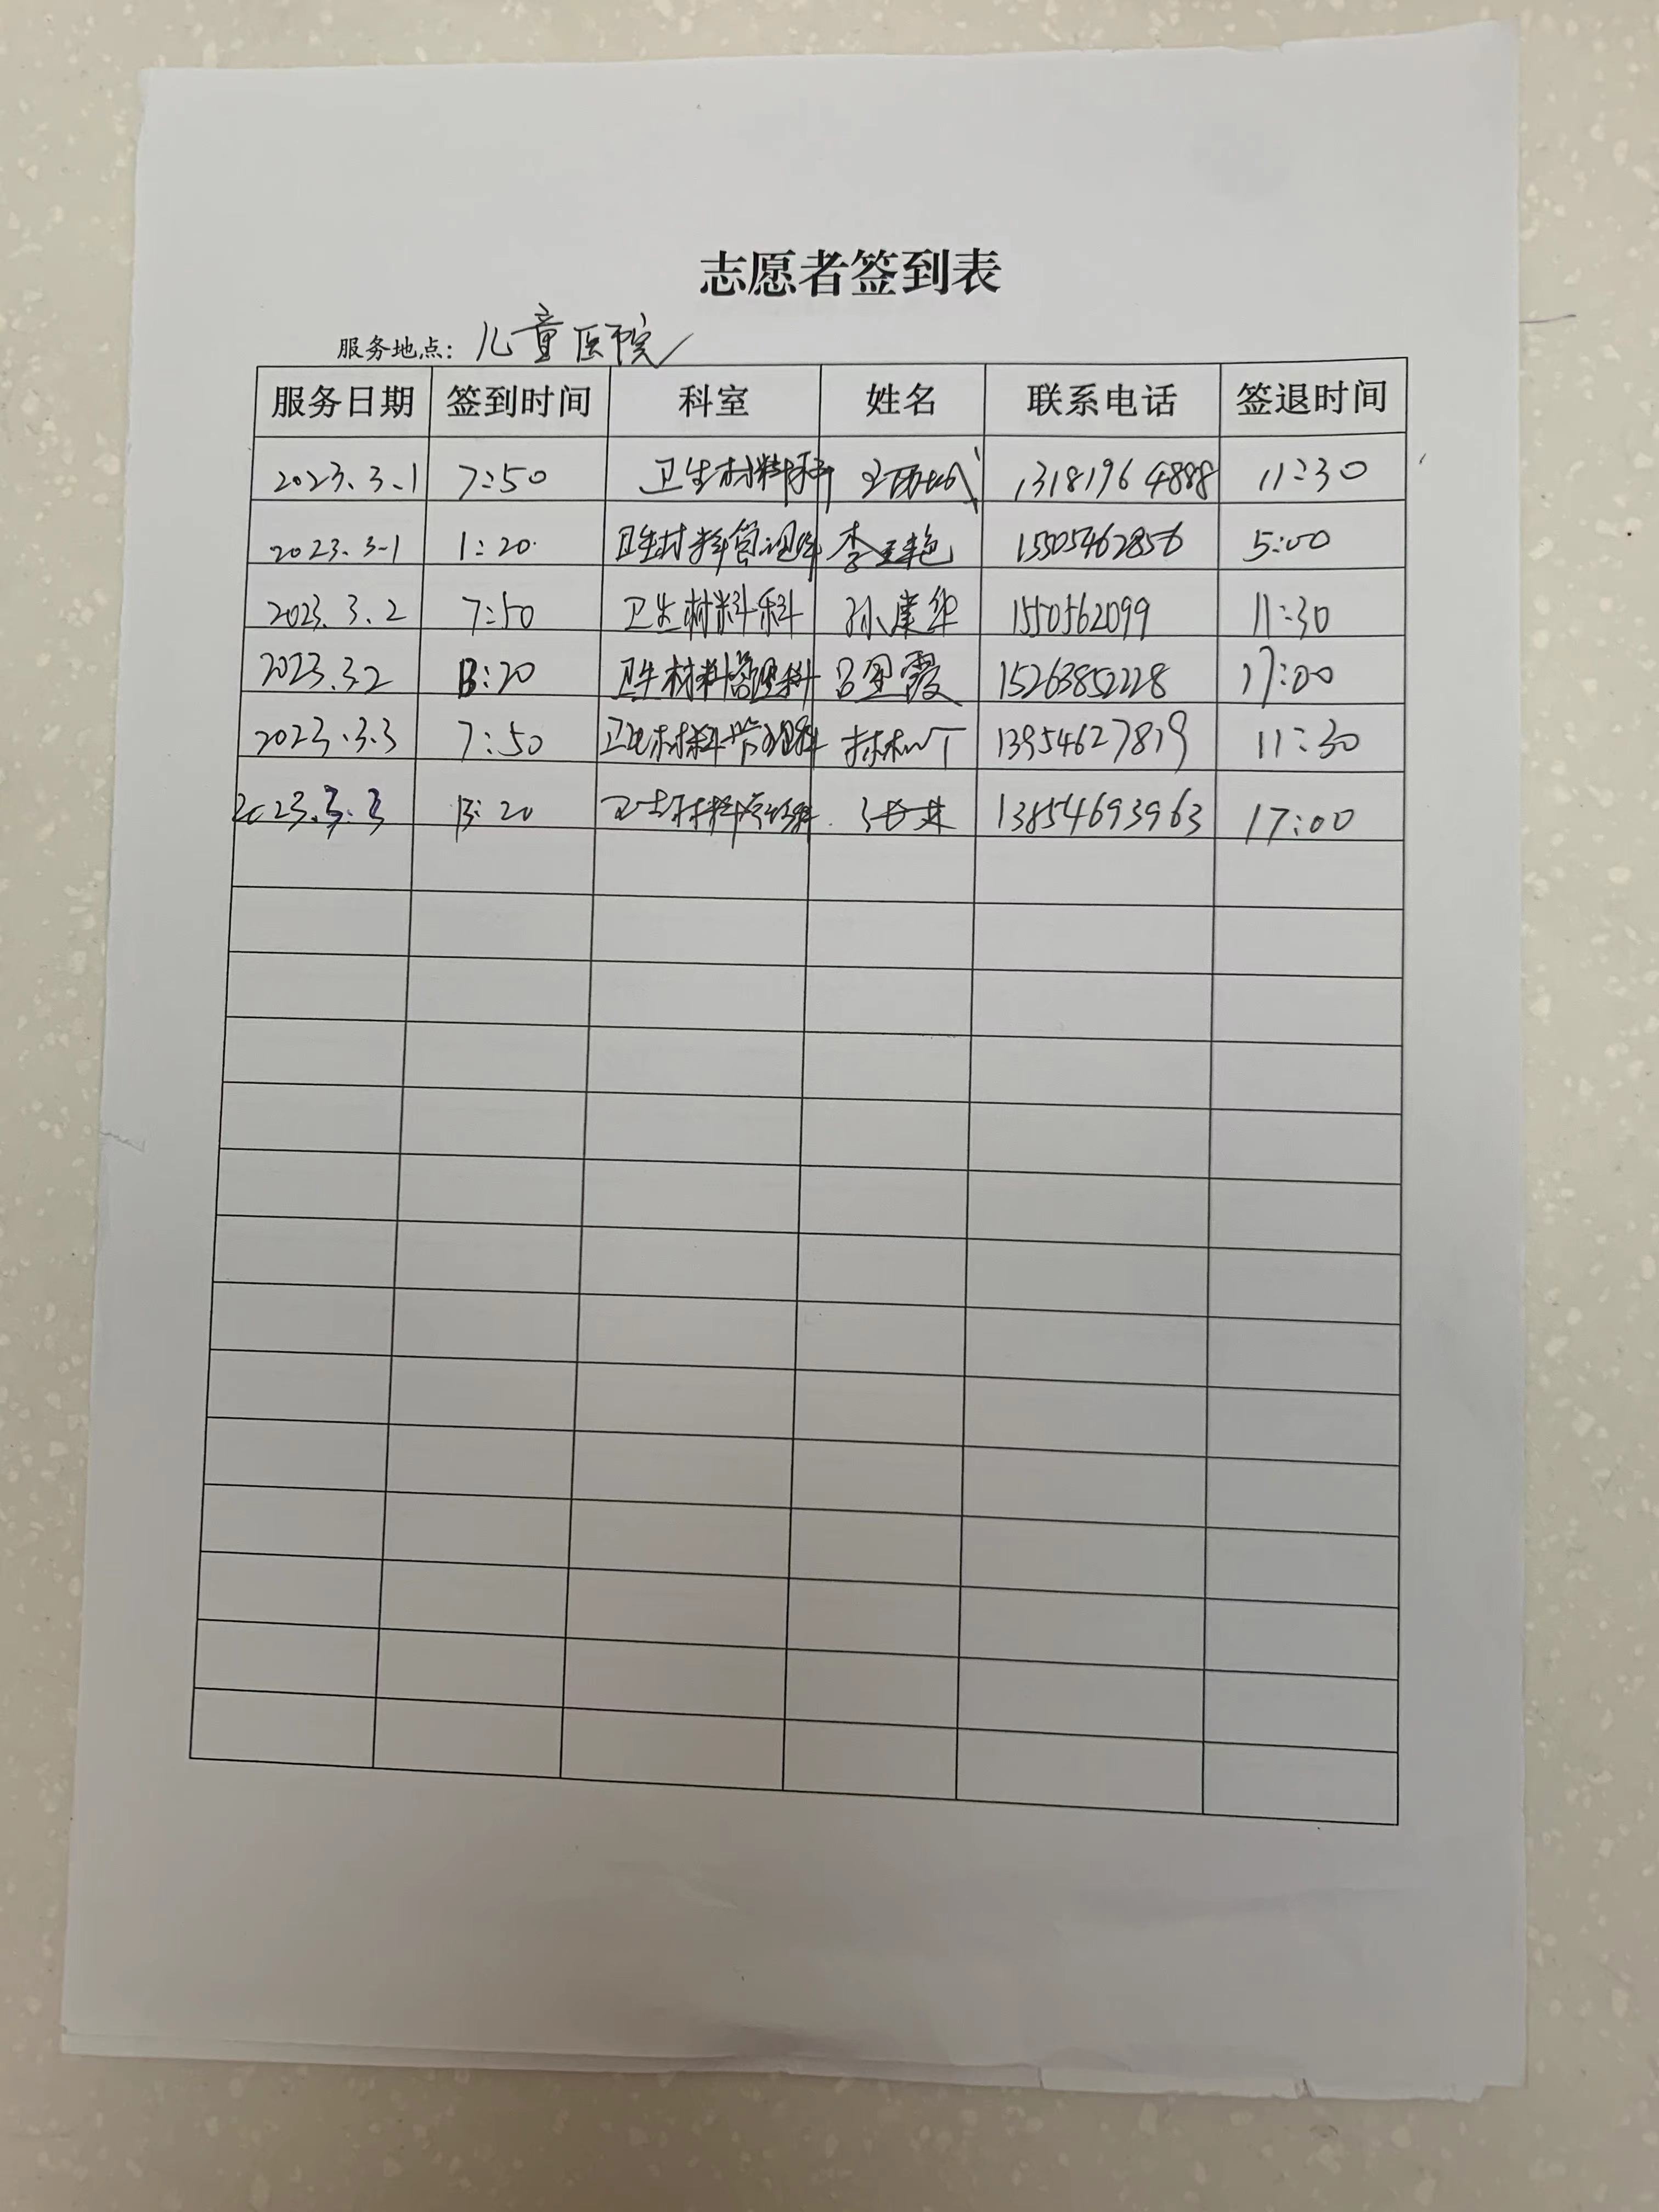 志愿者签到表
服务地点: 儿童医院
服务日期 签到时间 科室 姓名 联系电话 签退时间
2023.3.1 7:50 卫生材料科 13181964888 11:30
2023.3.1 1:20 卫生材料管理科 李玉艳 15505462856 5:00
2023.3.2 7:50 卫生材料科 孙康华 1550562099 11:30
2023.3.2 13:20 卫生材料管理科 吕星霞 15263852228 17:00
2023.3.3 7:50 卫生材料管理科 13954627819 11:30
2023.3.3 13:20 卫生材料管理科 13854693963 17:00